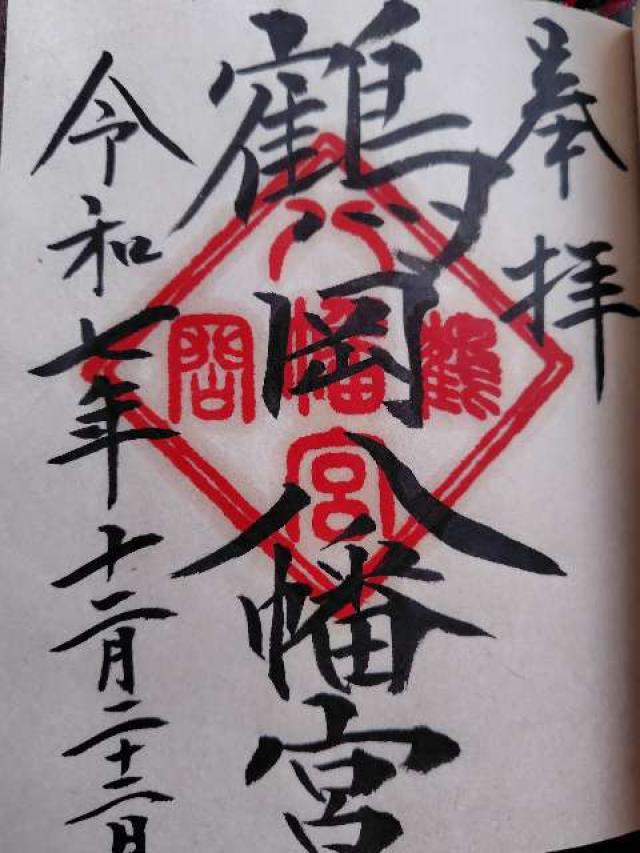 奉拝
鶴岡八幡宮
鶴岡
八幡宮
令和七年十二月二十二日